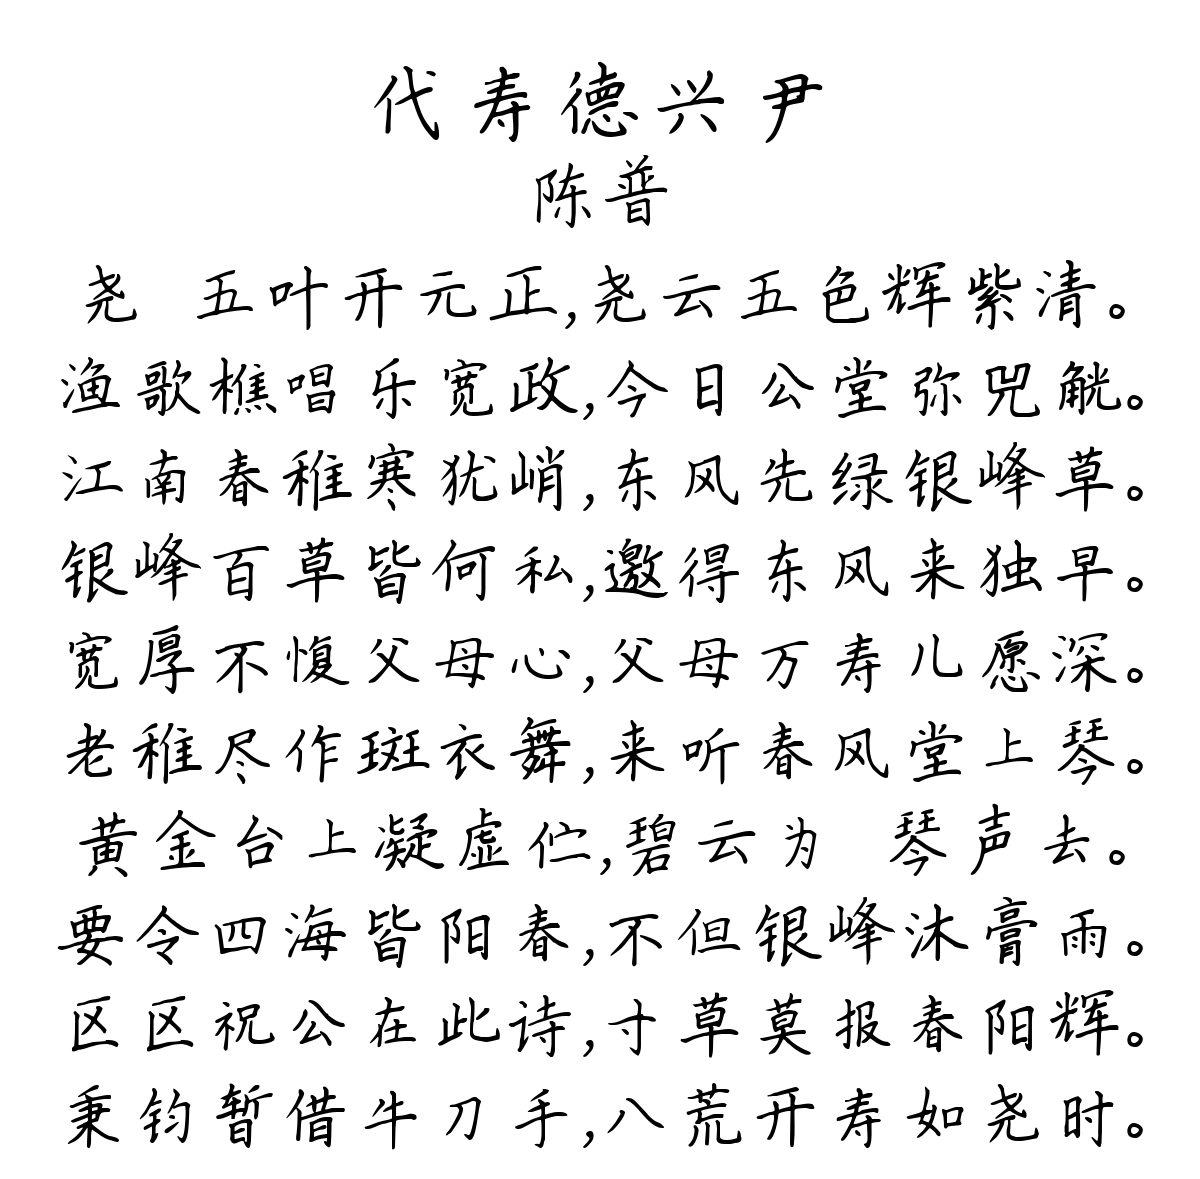 代寿德兴尹
陈普
尧 五叶开元正,尧云五色辉紫清。
渔歌樵唱乐宽政,今日公堂弥兕觥。
江南春稚寒犹峭,东风先绿银峰草。
银峰百草皆何私,邀得东风来独早。
宽厚不愎父母心,父母万寿儿愿深。
老稚尽作斑衣舞,来听春风堂上琴。
黄金台上凝虚伫,碧云为 琴声去。
要令四海皆阳春,不但银峰沐膏雨。
区区祝公在此诗,寸草莫报春阳辉。
秉钧暂借牛刀手,八荒开寿如尧时。